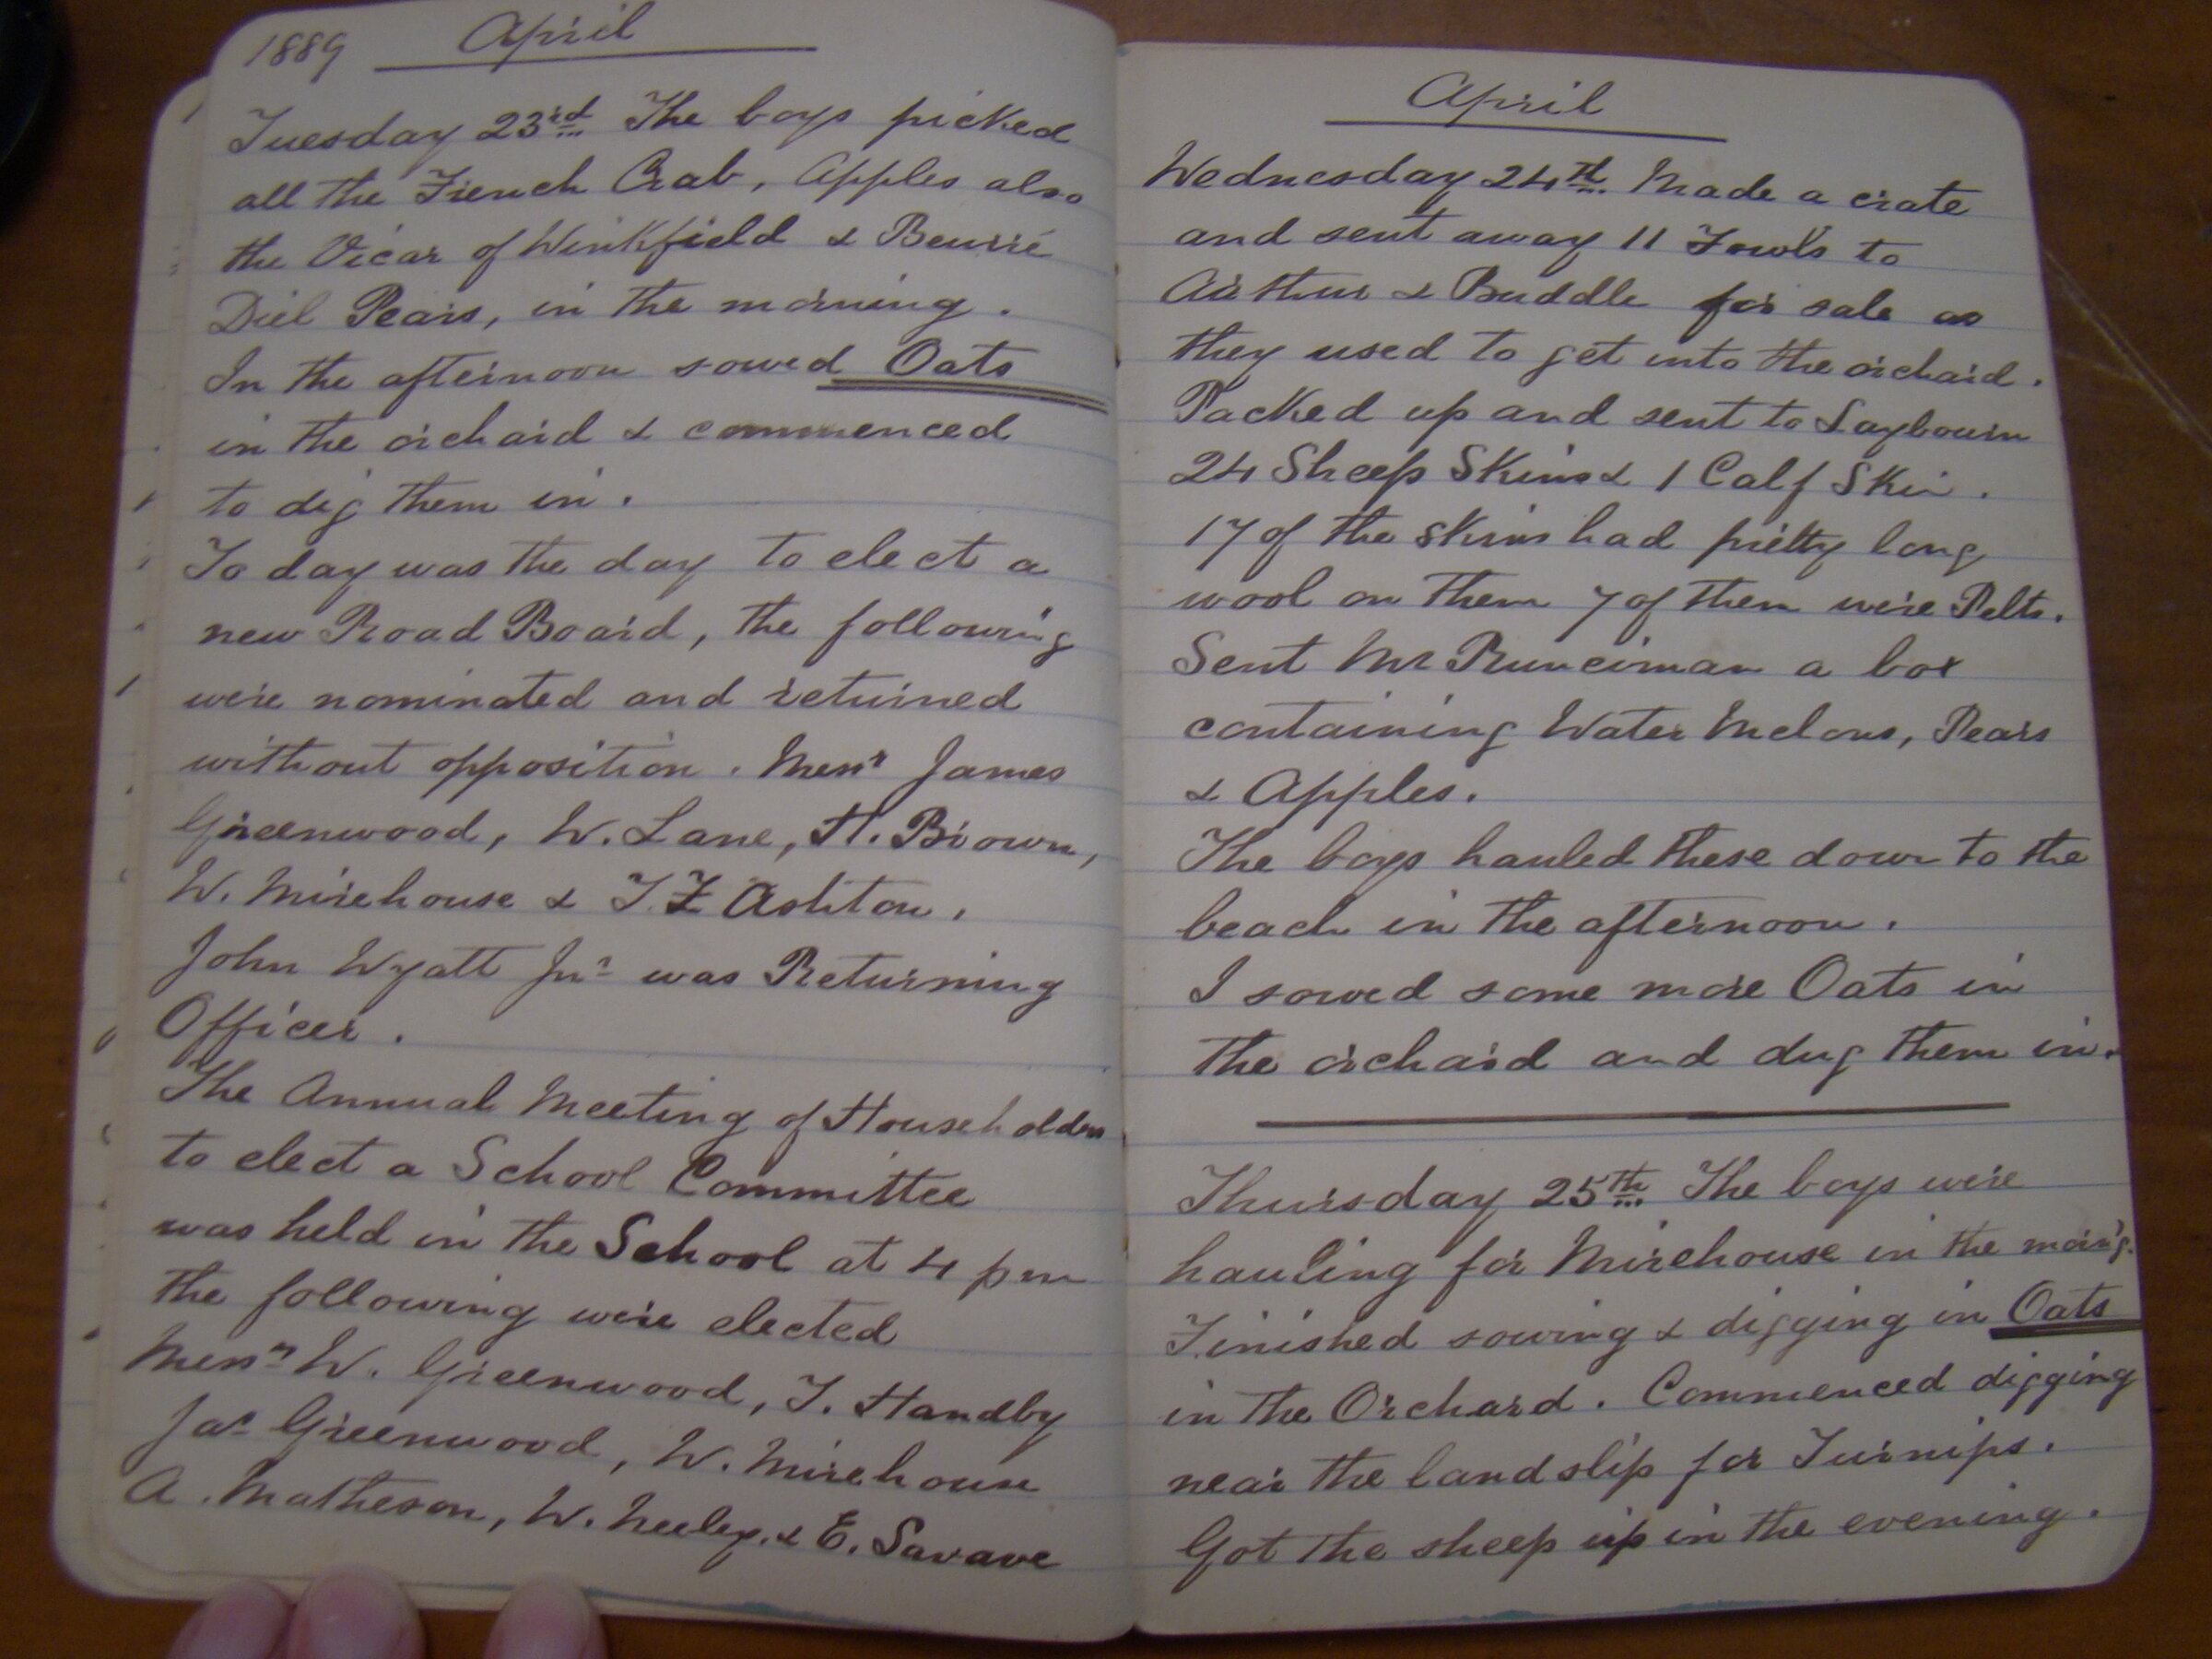 1889 April
Tuesday 23rd The boys picked
all the French Crab, Apples also
the Vicar of Winkfield & Beurré
Diel Pears, in the morning.
In the afternoon sowed Oats
in the orchard & commenced
to dig them in.
To day was the day to elect a
new Road Board, the following
were nominated and returned
without opposition. Messrs James
Greenwood, W. Lane, H. Brown,
W. Mirehouse & T. F Ashton.
John Wyatt Jnr was Returning
Officer.
The Annual Meeting of Householders
to elect a School Committee
was held in the School at 4 pm
the following were elected
Messrs W. Greenwood, T. Handby
Jas Greenwood, W. Mirehouse
A. Matheson, W. Neeley. & E. Savave
April
Wednesday 24th Made a crate
and sent away 11 Fowls to
Arthur & Buddle for sale as
they used to get into the orchard.
Packed up and sent to Laybourn
24 Sheep Skins & 1 Calf Skin.
17 of the skins had pretty long
wool on them 7 of them were Pelts.
Sent Mr Runciman a box
containing Water Melons, Pears
& Apples.
The boys hauled these down to the
beach in the afternoon.
I sowed some more Oats in
the orchard and dug them in.
Thursday 25th The boys were
hauling for Mirehouse in the morn'g.
Finished sowing & digging in Oats
in the Orchard. Commenced digging
near the landslip for Turnips.
Got the sheep up in the evening.